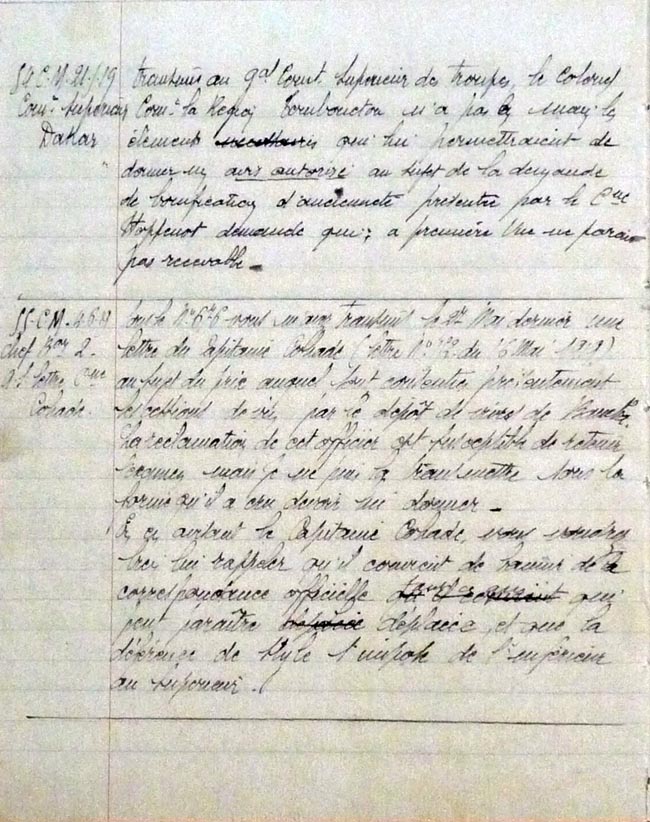 54 C.M. 21-5-19 Transmis au Gal Comt Supérieur des troupes, le Colonel
Comt Supérieur Comt la Région Tombouctou n'a pas en mains les
Dakar éléments qui lui permettraient de
donner un avis autorisé au sujet de la demande
de bonification d'ancienneté présentée par le Cne
Hoppenot demande qui, à première vue ne parait
pas recevable
55-C.M. 4-6-19 vous m'avez transmis le 27 Mai dernier une
Chef Bon 2. lettre du Capitaine (lettre No 12 du 16 Mai 1919)
lettre Cne au sujet du prix auquel sont présentement
les cessions de par le dépôt de vivres de
La réclamation de cet officier est susceptible de retenir
mais je ne puis la transmettre sous la
forme qu'il a cru devoir lui donner
En avisant le Capitaine vous voudrez
bien lui rappeler qu'il convient de bannir de la
correspondance officielle qui
peut paraître déplacée, et que la
déférence de style s'impose de l'inférieur
au supérieur.